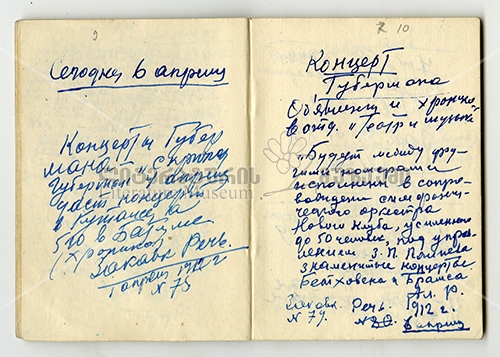 9
Сегодня 6 апреля
Концерты Губер
мана. "Скрипач
Губерман 4 апреля
даст концерт
в Кутаисе, а
5го в Батуме
(Хроника)
Закавк. Речь.
1 апреля 1912 г
N 73
10
Концерт
Губермана
Объявлен и хроника
в отд. "Театр и музыка"
"Будет между дру
гими номерами
исполнен в сопро
вождении симфони
ческого оркестра
Нового клуба, усиленного
до 50 человек, под управ
лением
знаменитые концерты
Бетховена и Брамса
Закавк. Речь.
1912 г.
N 79.
6 апреля
ლიტერატურის მუზეუმი
Literature Museum